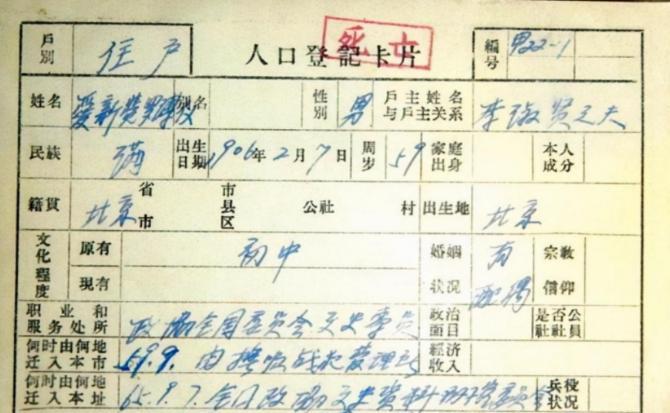 死亡
戶別 住户 人口登記卡片 編号 男22-1
姓名 爱新觉罗溥仪 别名 性别 男 戶主姓名与戶主关系 李淑贤之夫
民族 满 出生日期 1906年2月7日 周岁 59 家庭出身 本人成分
籍貫 北京 省市 市县区 公社 村 出生地 北京
文化程度 原有 初中 婚姻状况 有配偶 宗教信仰
現有
职业和服务处所 政协全国委员会文史专员 政治面目 是否公社社員
何时由何地迁入本市 59.9. 由撫順战犯管理所 経济收入
何时由何地迁入本址 65.9.7. 全国政协文史资料研究委员会 兵役状况